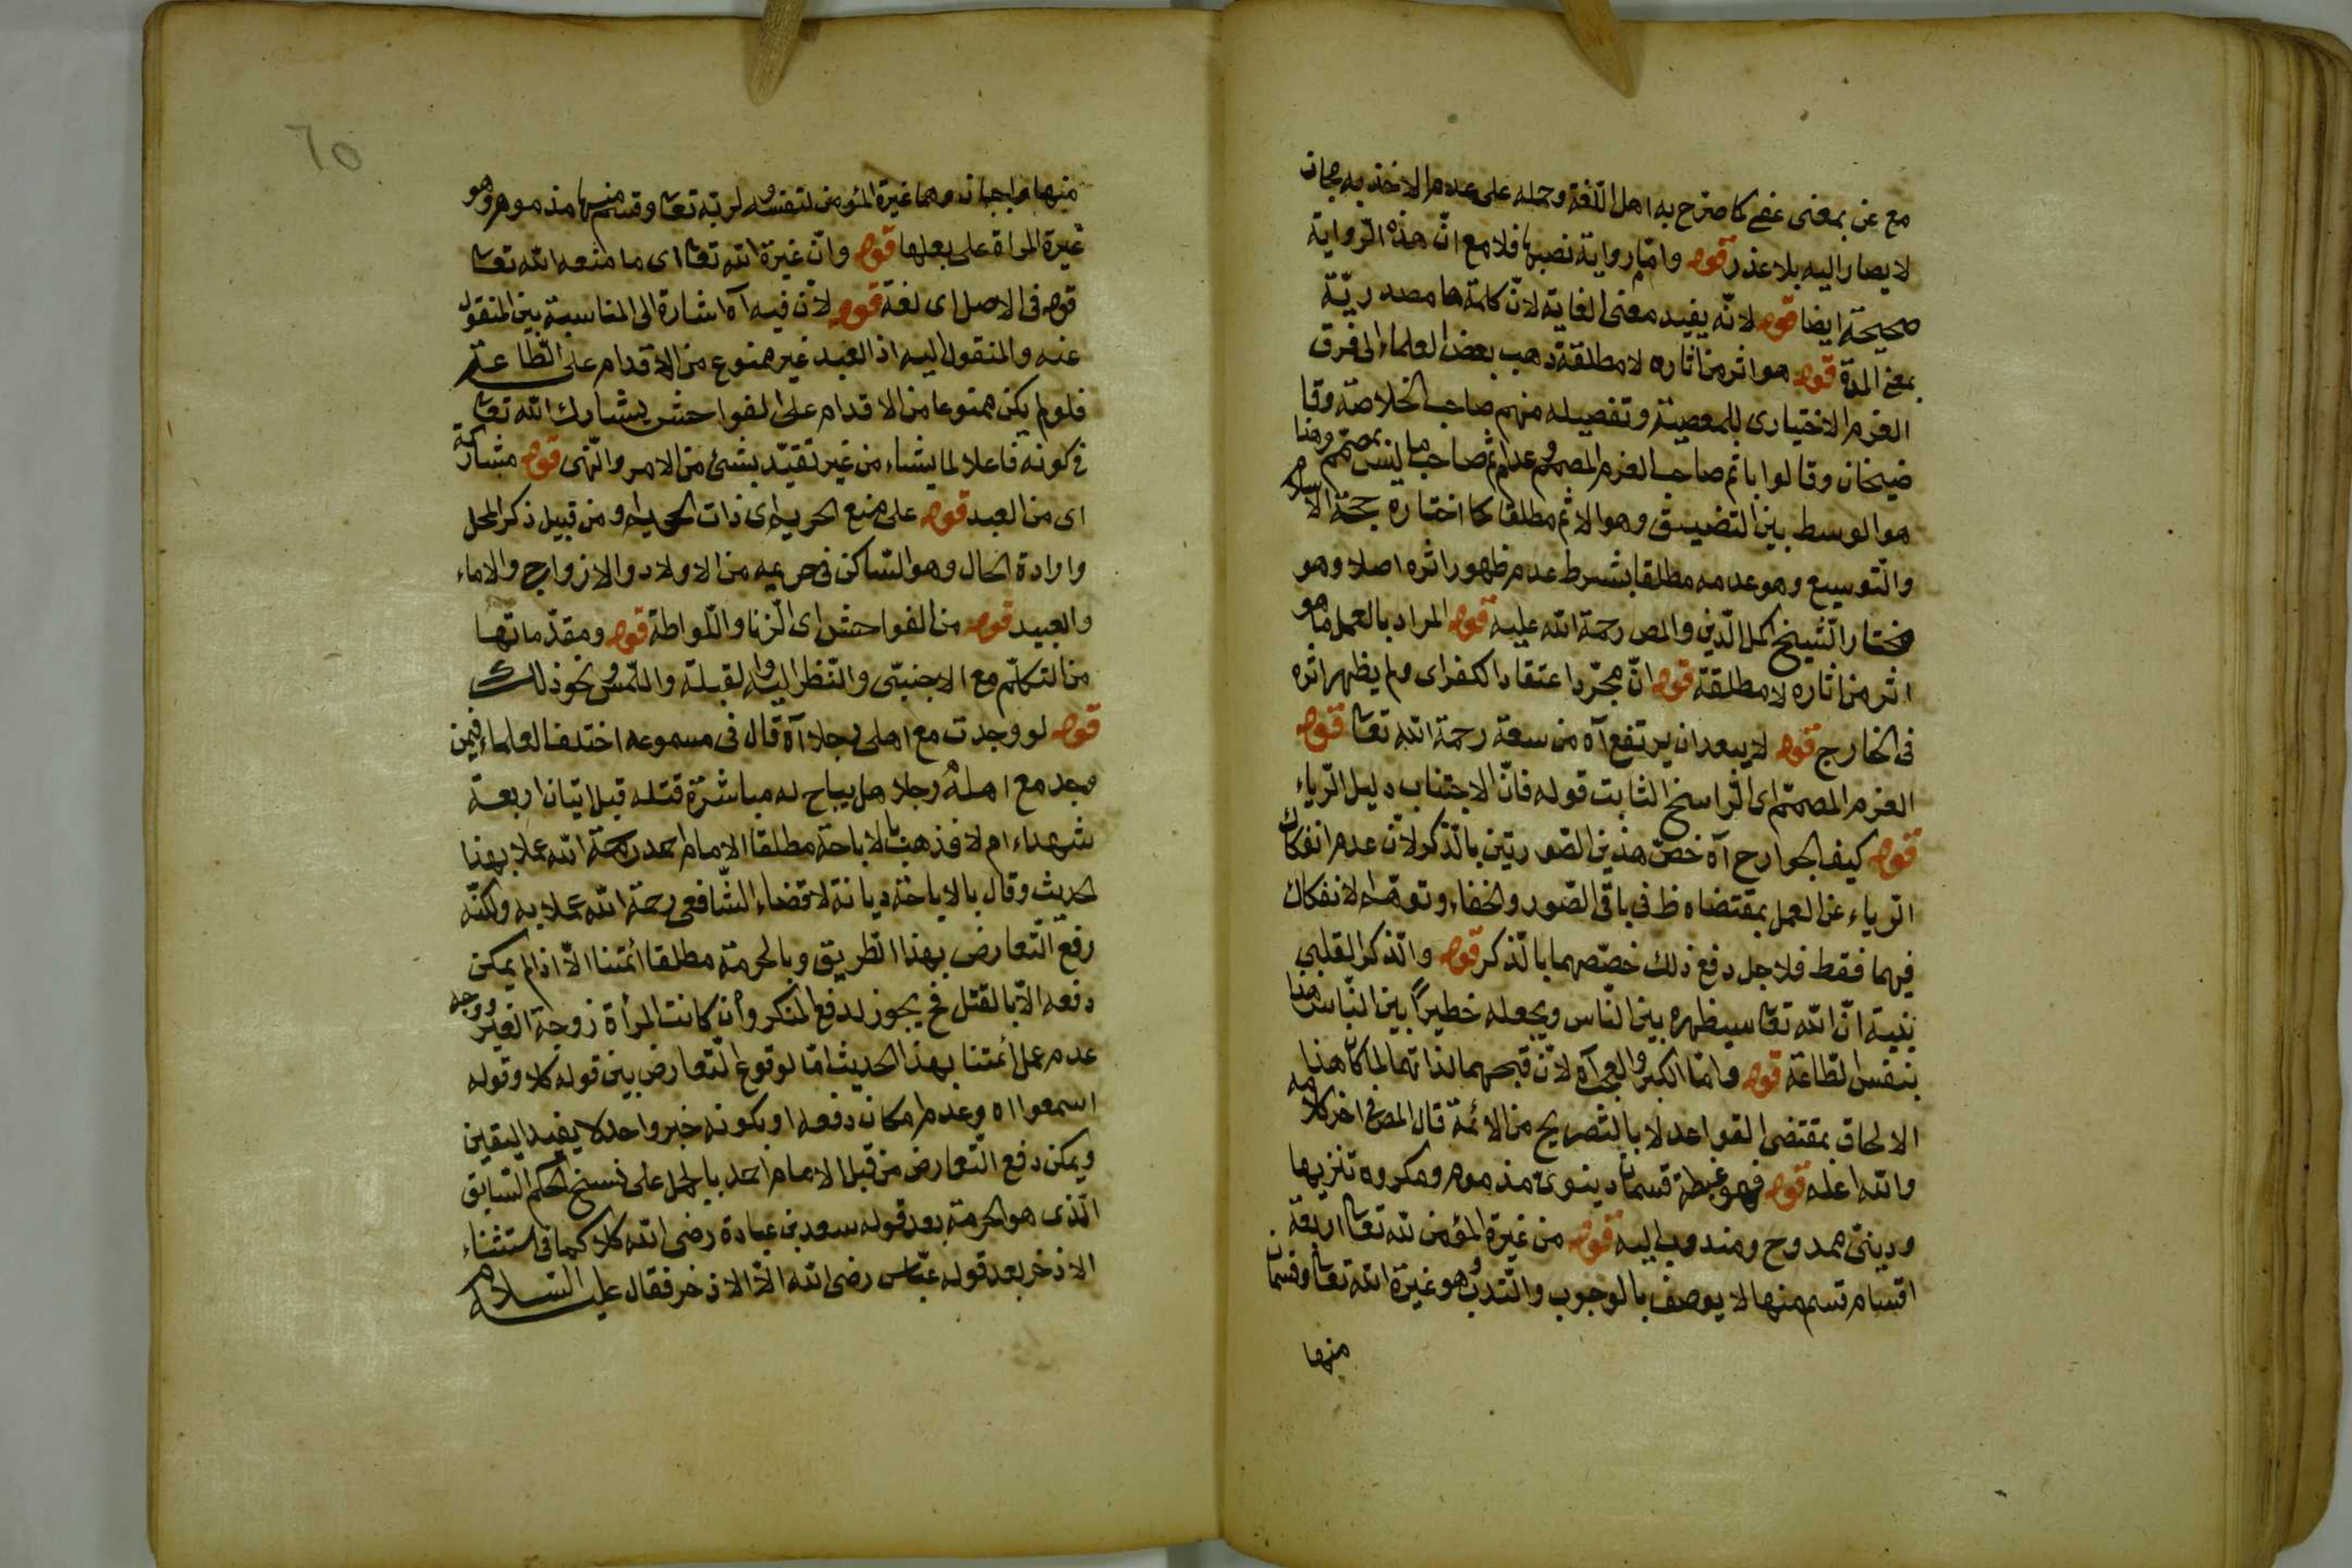 مع عن بمعنى غفى كما صرّح به اهل اللّغة وحمله على عدم الاخذ به مجاز
لا يصار اليه بلا عذر قوله وامّا رواية نصبها فلا مع انّ هذه الرّواية
صحيحة ايضا قوله لانّه يفيد معنى الغاية لانّ كلمة ما مصدريّة
بمعنى المدة قوله هو اثر من اثاره لا مطلقة ذهب بعض العلماء الى فرق
العزم الاختيارى بالمعصية وتفصيله منهم صاحب الخلاصة وقا
ضيخان وقالوا باثم صاحب العزم المصمم وعدم اثم صاحب ما ليس بمصمّم وهذا
هو الوسط بين التضييق وهو الاثم مطلقا كما اختاره حجة الاسلام
والتّوسيع وهو عدمه مطلقا بشرط عدم ظهور اثره اصلا وهو
مختار الشّيخ اكمل الدّين والمص رحمة الله عليه قوله المراد بالعمل ما هو
اثر من اثاره لا مطلقة قوله انّ مجرّد اعتقاد الكفر اى ولم يظهر اثره
فى الخارج قوله لا يبعد ان يرتفع آه من سعة رحمة الله تعا قوله
العزم المصمّم اى الرّاسخ الثابت قوله فانّ الاجتناب دليل الرّياء
قوله كيف الجوارح آه خصّ هذين الصّورتين بالذّكر لانّ عدم انفكاك
الرياء عن العمل بمقتضاه ظ فى باقى الصّور والخفاء وتوهّم الانفكاك
فيهما فقط فلاجل دفع ذلك خصّصهما بالذّكر قوله والذّكر القلبى
بنية انّ الله تعا سيظهره بين النّاس ويجعله خطيرًا بين النّاس هذا
بنفس الطّاعة قوله وامّا الكبر والعجب آه لانّ قبحهما لذاتهما لما كان هذا
الالحاق بمقتضى القواعد لا بالتّصريح من الائمّة قال المص فى اخر كلامه
والله اعلم قوله فهو غبطة قسمان دينوىّ مذموم ومكروه تنزيها
ودينىّ ممدوح ومندوب اليه قوله من غيرة المؤمن لله تعا اربعة
اقسام قسم منها لا يوصف بالوجوب والنّدب وهو غيرة الله تعا وقسمان
منها
٦٥
منها واجبان وهما غيرة المؤمن لنفسه ولربّه تعا وقسم منها مذموم وهو
غيرة المراة على بعلها قوله وانّ غيرة الله تعا اى ما منعه الله تعا
قوله فى الاصل اى لغة قوله لانّ فيه آه اشارة الى المناسبة بين المنقول
عنه والمنقول اليه اذ العبد غير ممنوع من الاقدام على الطّاعة
فلو لم يكن ممنوعا من الاقدام على الفواحش يشارك الله تعا
فى كونه فاعلا لما يشاء من غير تقيّد بشئ من الامر والنّهى قوله مشاركة
اى من العبد قوله على منع الحريم اى ذات الحريم او من قبيل ذكر المحل
وارادة الحال وهو السّاكن فى حريمه من الاولاد والازواج والاماء
والعبيد قوله من الفواحش اى الزّنا واللّواطة قوله ومقدّماتها
من التكلّم مع الاجنبىّ والنّظر اليه والقبلة واللّمس ونحو ذلك
قوله لو وجدت مع اهلى رجلا آه قال فى مسموعه اختلف العلماء فيمن
وجد مع اهلهُ رجلا هل يباح له مباشرة قتله قبل اتيان اربعة
شهداء ام لا فذهب بالاباحة مطلقا الامام احمد رحمة الله عملا بهذا
الحديث وقال بالاباحة ديانة لا قضاء الشّافعى رحمة الله عملا به ولكنّه
رفع التّعارض بهذا الطريق وبالحرمة مطلقا ائمّتنا الّا اذا لم يمكن
دفعه الّا بالقتل فح يجوز لدفع المنكر وأن كانت المرأة زوجة الغير ووجه
عدم عمل ائمتنا بهذا الحديث امّا لوقوع التّعارض بين قوله كلا وقوله
اسمعوا اه وعدم امكان دفعه او بكونه خبر واحد لا يفيد اليقين
ويمكن دفع التّعارض من قبل الامام احمد بالحمل على نسخ الحكم السّابق
الّذى هو الحرمة بعد قوله سعد بن عبادة رضى الله كلا كما فى استثناء
الاذخر بعد قوله عبّاس رضى الله الّا الاذخر فقال عليه السّلام